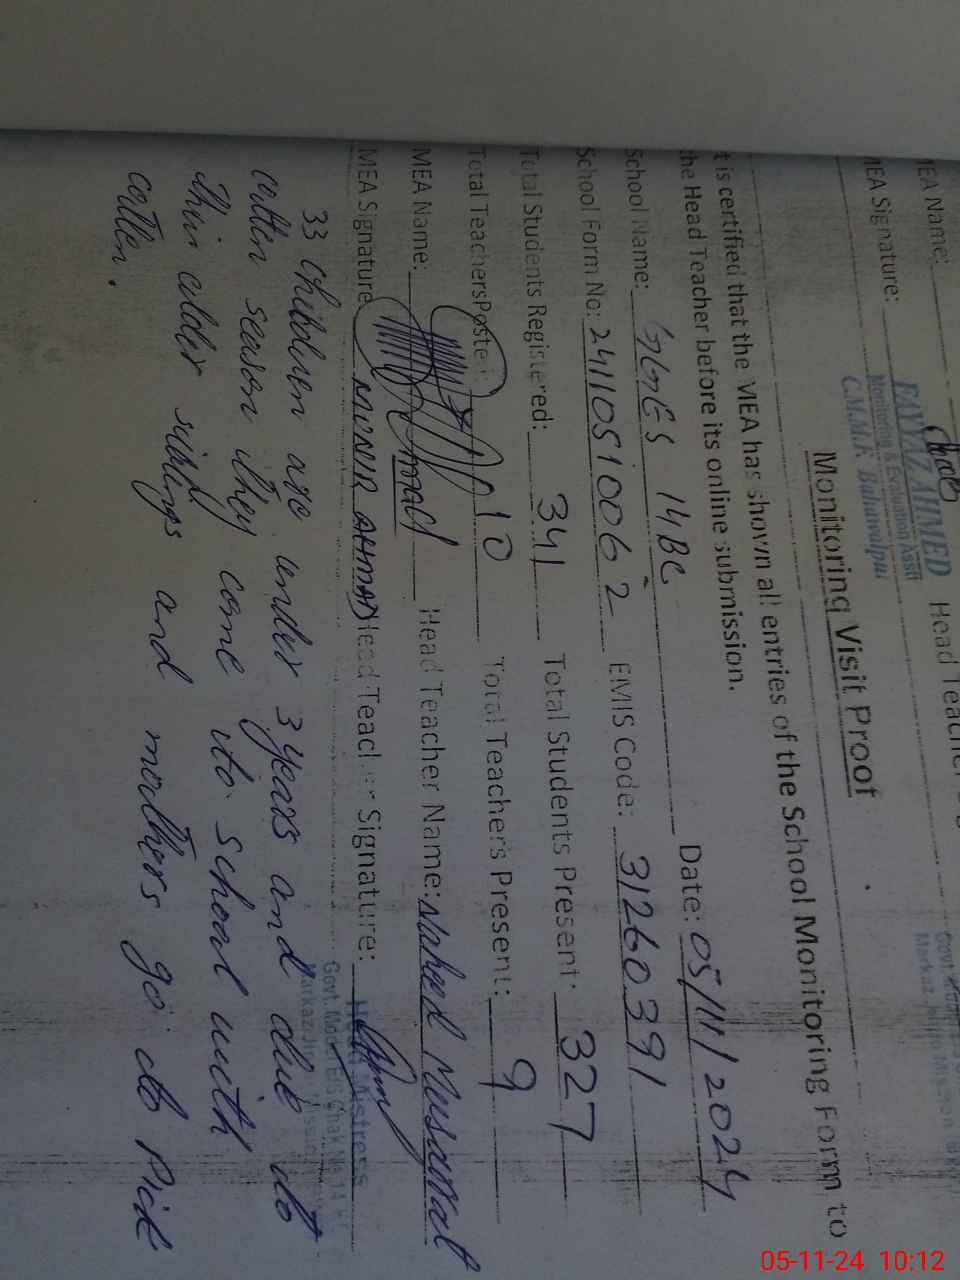 MEA Name:
Head Teacher
MEA Signature:
FAYYAZ AHMED
Monitoring & Evaluation Asstt
C.M.M.F. Bahawalpur
Monitoring Visit Proof
It is certified that the MEA has shown all entries of the School Monitoring Form to
the Head Teacher before its online submission.
School Name: GGES 14BC Date: 05/11/2024
School Form No: 24110510062 EMIS Code: 31260391
Total Students Registered: 341 Total Students Present: 327
Total Teachers Posted: 10 Total Teachers Present: 9
MEA Name: Head Teacher Name: Naheed Musarrat
MEA Signature MUNIR AHMAD Head Teacher Signature:
Head Mistress
33 children are under 3 years and due to
cotten season they come to school with
thin elder siblings and mothers go to Pick
cotten.
05-11-24 10:12